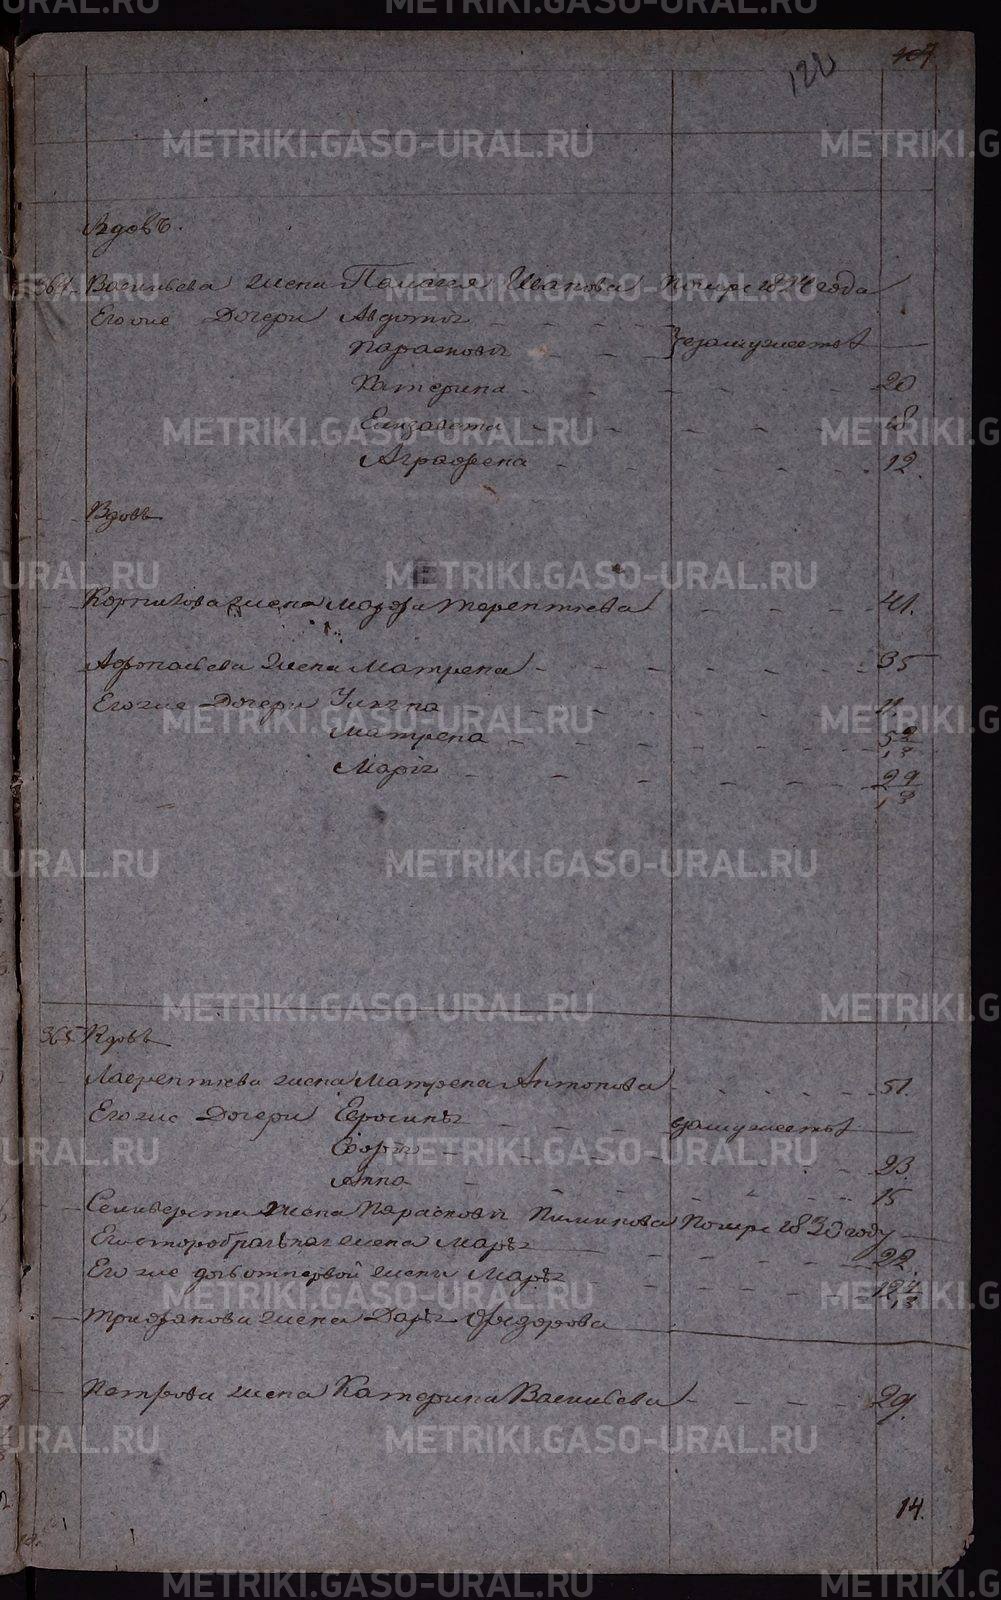 122 107
Вдовъ.
364 Васильева жена Палагея Иванова Померс 1824 года
Его же Дочери Авдотья
Парасковья взамужествѣ
Катерина 20
Елизавета 18
Аграфена 12
Вдовъ
Корнилова жена Марфа Терентьева 41.
Афонасьева жена Матрена 35
Его же Дочери Ульяна 11.
Матрена
Марья
365 Вдовъ
Лаврентьева жена Матрена Антонова 51.
Его же Дочери Евросинья взамужествѣ
23.
Анна 15
Селиверста жена Парасковья Пиминова Померс 1830 году
Его второбрачная жена Марья 22.
Его же дочь отпервой жены Марья
Трифанова жена Дарья Федорова
Петрова жена Катерина Васильева 29.
14.
METRIKI.GASO-URAL.RU